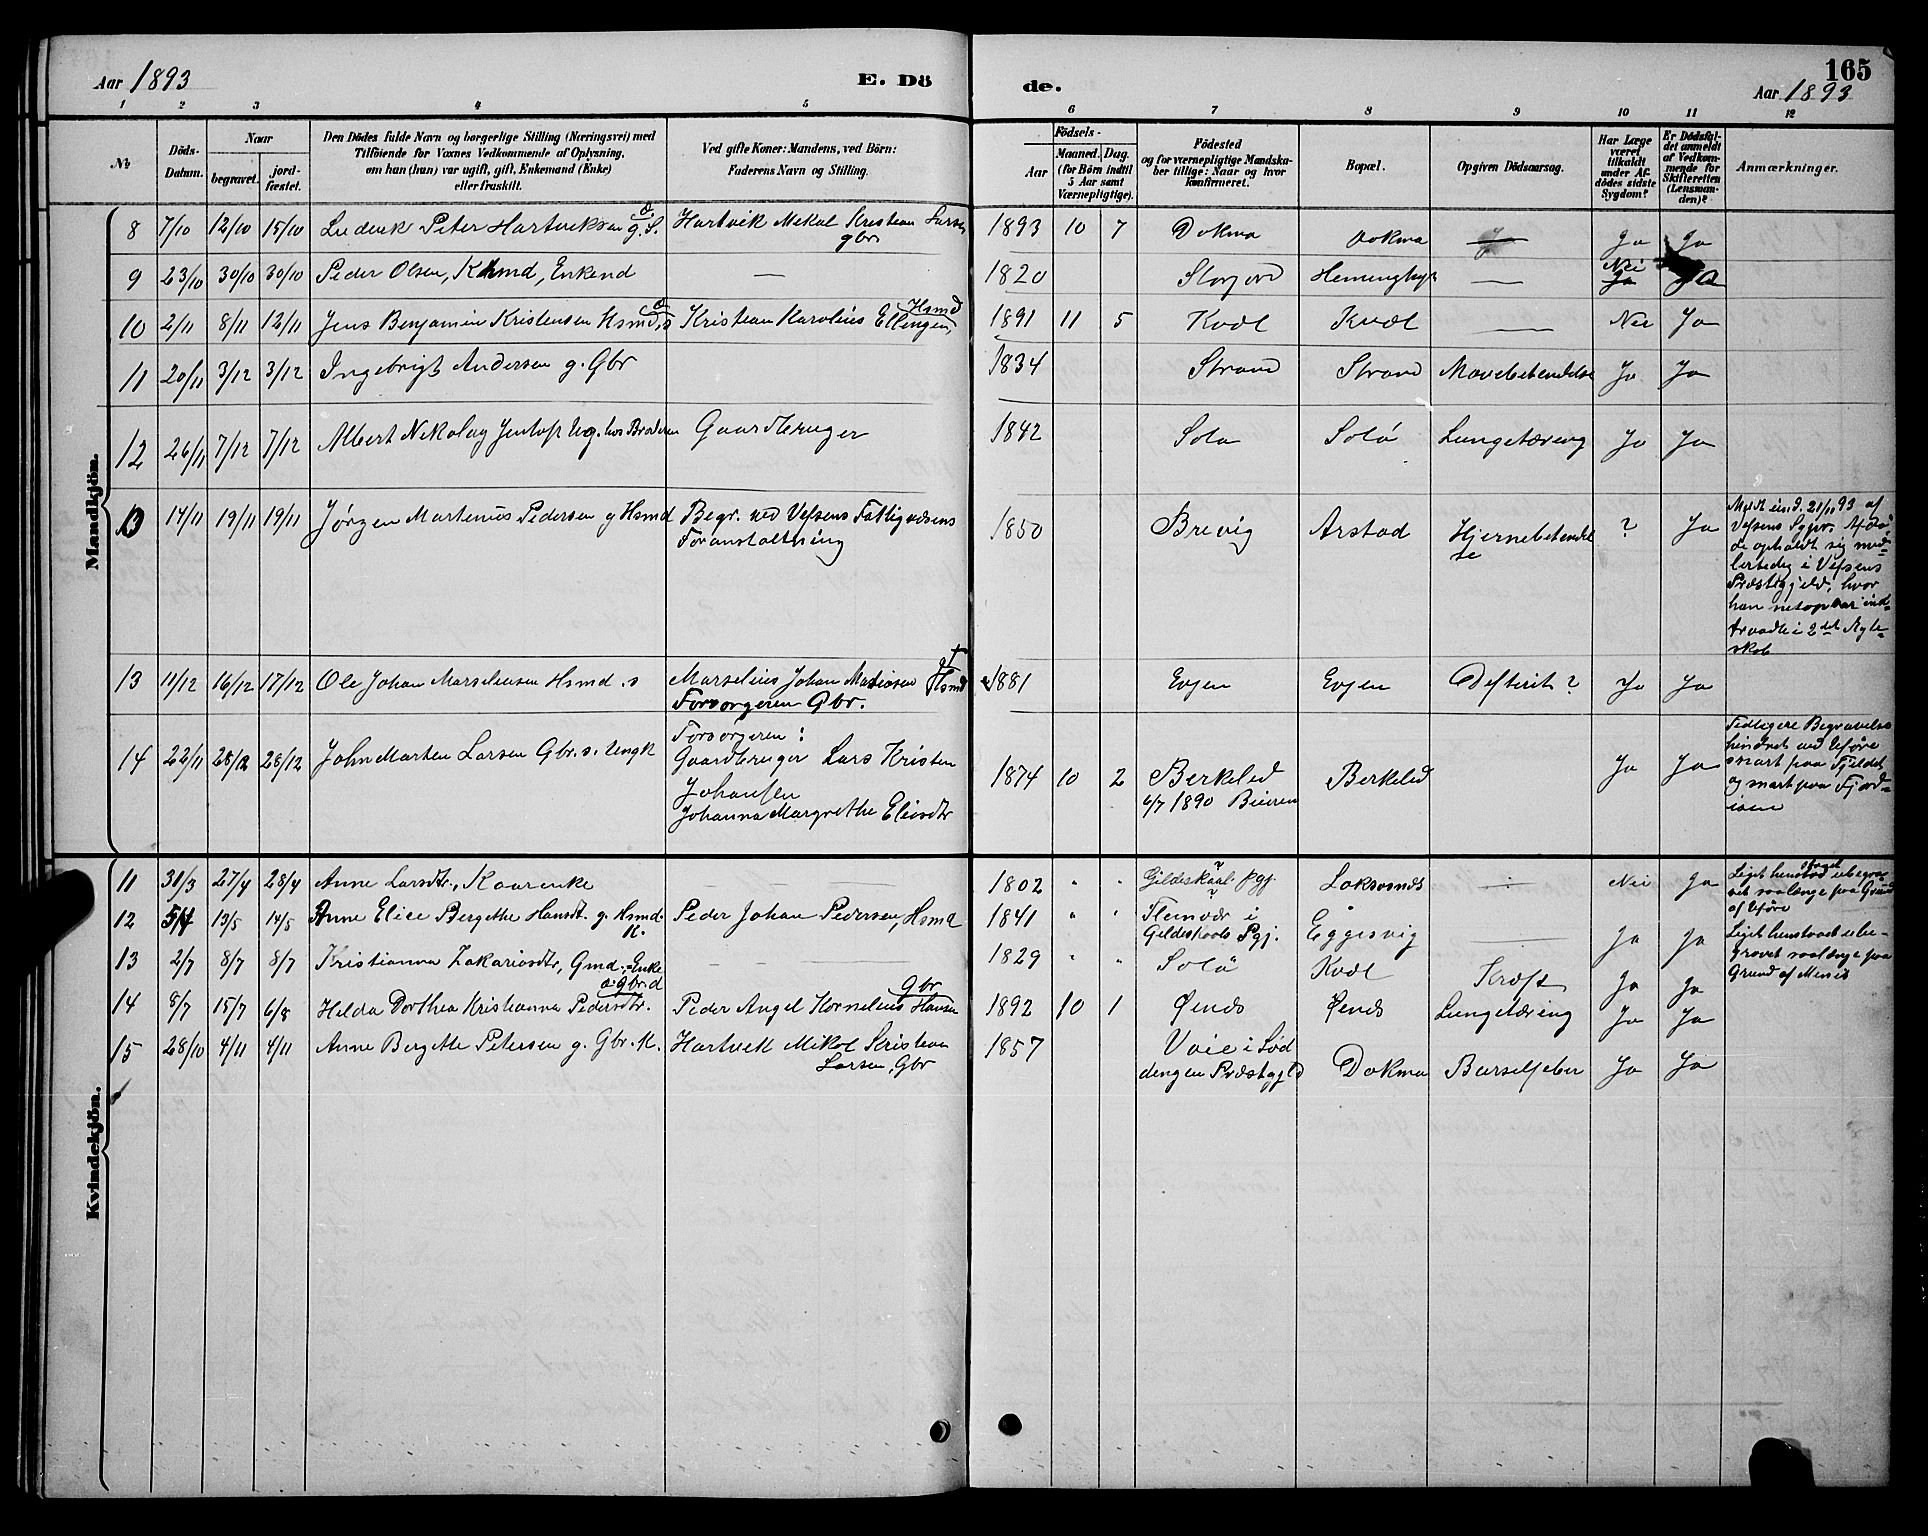 Aar 1893
E. Dö
de.
165
Aar 1893
1 2 3 4 5 6 7 8 9 10 11 12
№
Döds-
Datum.
Naar
begravet.
jord-
fæstet.
Den Dödes fulde Navn og borgerlige Stilling (Næringsvei) med
Tilföiende for Voxnes Vedkommende af Oplysning,
om han (hun) var ugift, gift, Enkemand (Enke)
eller fraskilt.
Ved gifte Koner: Mandens, ved Börn:
Faderens Navn og Stilling.
Födsels-
Aar
Maaned.
Dag.
(for Börn indtil
5 Aar samt
Værnepligtige).
Födested
og for værnepligtige Mandska-
ber tillige: Naar og hvor
konfirmeret.
Bopæl.
Opgiven Dödsaarsag.
Har Læge
været
tilkaldt
under Af-
dödes sidste
Sygdom?
Er Dödsfal-
det anmeldt
af Vedkom-
mende for
Skifteretten
(Lensman-
den)?
Anmærkninger.
Mandkjön.
8 7/10 12/10 15/10 Ludvik Peter Hartviksen g. S. Hartvik Mekal Kristian Larsen 1893 10 7 Dokmo Dokmo Ja Ja
gbr
9 23/10 30/10 30/10 Peder Olsen, Enkend — 1820 Storjord — Nei
Ja Ja
10 2/11 8/11 12/11 Jens Benjamin Kristensen Hsmd, s Kristian Karolius Ellingsen Hsmd 1891 11 5 Kvæl Kvæl — Nei Ja
11 20/11 3/12 3/12 Ingebrigt Andersen g. Gbr 1834 Strand Strand Mavebetendelse Ja Ja
12 26/11 7/12 7/12 Albert Nikolay Jentoft Ug. hos Broderen Gaardbruger 1842 Solø Lungetæring Ja Ja
13 14/11 19/11 19/11 Jørgen Martenus Pedersen g Hsmd Begr. ved Vefsens Fattigvæsens
Foranstaltning
1850 Brevig Arstad Hjernebetendel
se
? Ja
Vefsens Sgpr.
de opholdt sig mid-
lertidig i Vefsens
Præstegjeld, hvor
han netop var ind-
traadt i 2det Ægte-
skab
13 11/12 16/12 17/12 Ole Johan Marseliusen Hsmd. s Marselius Johan † Hsmd 1881 Evjen Evjen Defterit? Ja Ja
Forsorgeren Gbr.
14 22/11 28/12 28/12 John Marten Larsen Gbr. s. Ungk Forsorgeren:
Gaardbruger Lars Kristen
Johansen
Johanna Margrethe Eliasdtr
1874 10 2 Berkelid Berkelid Ja Ja
6/7 1890 Beieren
Tidligere Begravelse
hindret ved Uføre
snart paa Fjeldet
og snart paa Fjord-
isen
Kvindekjön.
11 31/3 27/4 28/4 Anne Larsdtr., Kaarenke — — — 1802 " " Gildeskaal Pgj. — Nei Ja
Liget henstod ubegra-
vet saalænge paa Grund
af Uføre
12 5/4 13/5 14/5 Anne Elise Bergethe Hansdt. g. Hsmd. K. Peder Johan Pedersen, Hsmd 1841 " " Fleinvær i
Gildeskaals Pgj. Eggesvig — Ja Ja
Liget henstaaet ube-
gravet saalænge paa
Grund af Menis
13 2/7 8/7 8/7 Kristianna Zakariasdtr, Gmd. Enke — — — 1829 " " Solø Kvæl Kræft Ja Ja
14 8/7 15/7 6/8 Helda Dorthea Kristianna Pedersdtr. Peder Angel Kornelius Hansen Gbr 1892 10 1 Øenes Øenes Lungetæring Ja Ja
15 28/10 4/11 4/11 Anne Bergette Petersen g. Gbr. K. Hartvik Mikal Kristian
Larsen, Gbr
1857 Vaie i Sød
dengen Præstgjld Dokmo Barselfeber Ja Ja